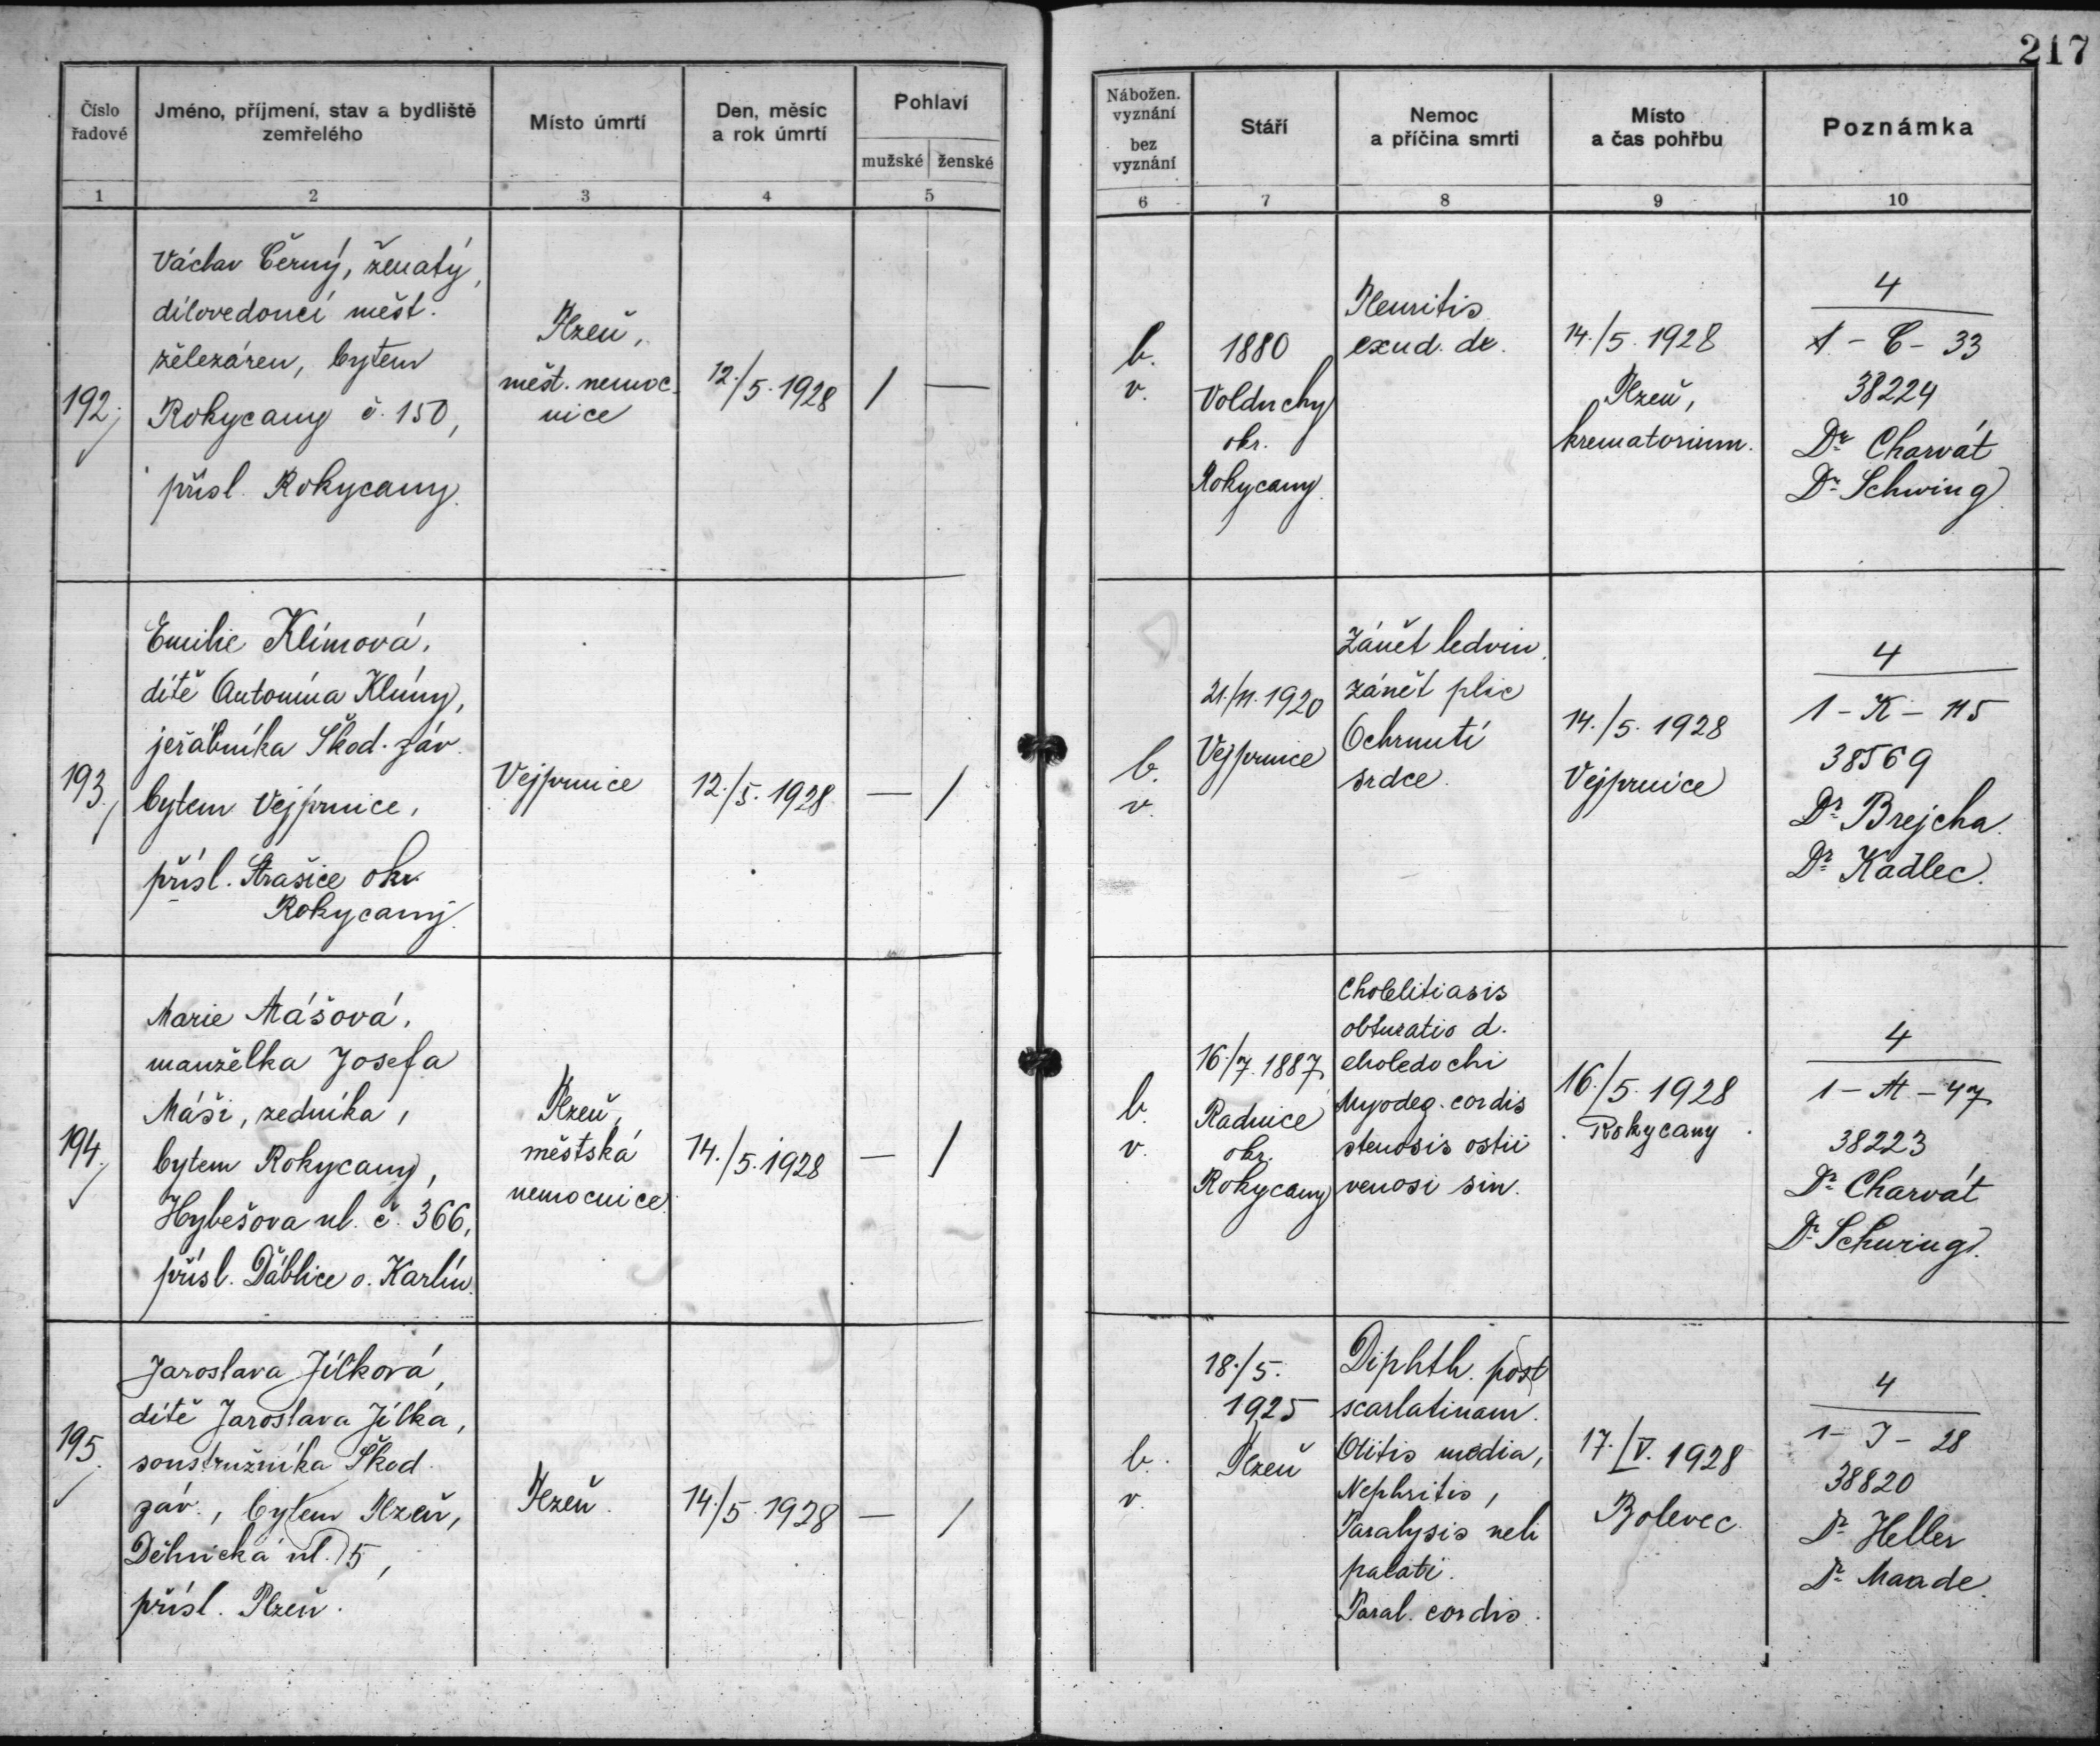 217
Číslo řadové
Jméno, příjmení, stav a bydliště zemřelého
Místo úmrtí
Den, měsíc a rok úmrtí
Pohlaví
mužské
ženské
Nábožen. vyznání
bez vyznání
Stáří
Nemoc a příčina smrti
Místo a čas pohřbu
Poznámka
1
2
3
4
5
6
7
8
9
10
192.
Václav Černý, ženatý,
dílovedoucí měst.
želežáren, bytem
Rokycany č. 150,
přísl. Rokycany.
Plzeň,
měst. nemoc-
nice
12./5. 1928
/
—
b.
v.
1880
Volduchy
okr.
Rokycany.
Pleuritis
exud. dx.
14./5. 1928
Plzeň,
krematorium.
4
1 - C - 33
38224
Dr Charvát
Dr Schwing
193.
Emilie Klímová,
dítě Antonína Klímy,
jeřábníka Škod. záv.
bytem Vejprnice,
přísl. Strašice okr.
Rokycany.
Vejprnice
12./5. 1928
—
/
b.
v.
21./11. 1920
Vejprnice
Zánět ledvin.
zánět plic
Ochrnutí
srdce.
14./5. 1928
Vejprnice
4
1 - K - 115
38569
Dr Brejcha.
Dr Kadlec.
194.
Marie Mášová,
manželka Josefa
Máši, zedníka,
bytem Rokycany,
Hybešova ul. č. 366,
přísl. Ďáblice o. Karlín.
Plzeň,
městská
nemocnice.
14./5. 1928
—
/
b.
v.
16./7. 1887
Radnice
okr.
Rokycany
Cholelitiasis
obturatio d.
choledochi
Myodeg. cordis
stenosis ostii
venosi sin.
16./5. 1928
Rokycany.
4
1 - M - 47
38223
Dr Charvát
Dr Schwing.
195.
Jaroslava Jílková,
dítě Jaroslava Jílka,
soustružníka Škod.
záv., bytem Plzeň,
Dělnická ul. 5,
přísl. Plzeň.
Plzeň.
14./5. 1928
—
/
b.
v.
18./5.
1925
Plzeň
Diphth. post
scarlatinam.
Otitis media,
Nephritis,
Paralysis veli
palati.
Paral. cordis.
17./V. 1928
Bolevec.
4
1 - J - 28
38820
Dr Heller
Dr Maade